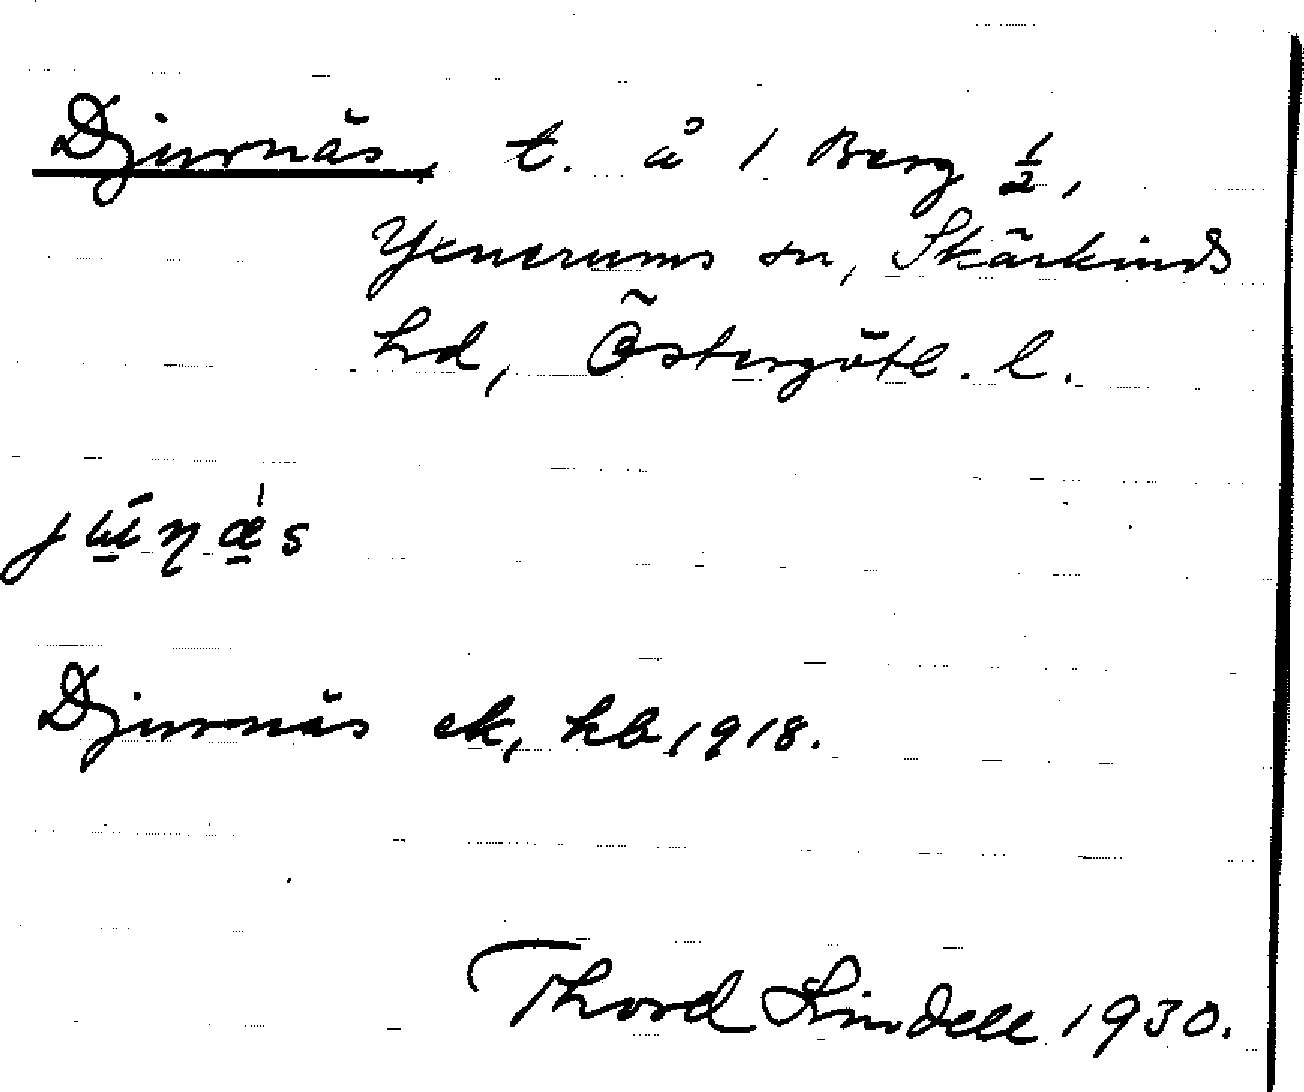 Djurnäs, t. å 1 Berg 1/2,
Yxnerums sn, Skärkinds
hd, Östergötl. l.
Djurnäs ek, kb 1918.
Thord Lindell 1930.